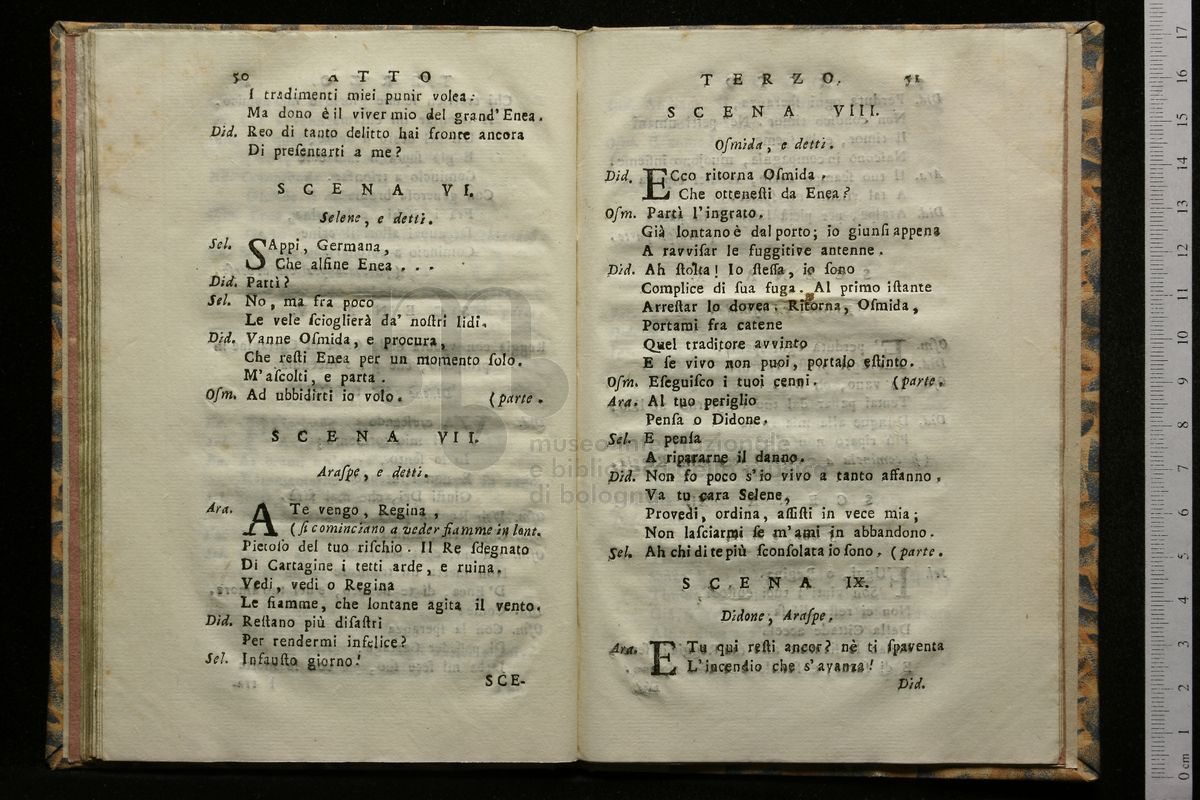 50 ATTO
I tradimenti miei punir volea:
Ma dono è il viver mio del grand' Enea.
Did. Reo di tanto delitto hai fronte ancora
Di preſentarti a me?
SCENA VI.
Selene, e detti.
Sel. SAppi, Germana,
Che alfine Enea . . .
Did. Partì?
Sel. No, ma fra poco
Le vele ſcioglierà da' noſtri lidi.
Did. Vanne Oſmida, e procura,
Che reſti Enea per un momento ſolo.
M'aſcolti, e parta.
Oſm. Ad ubbidirti io volo. (parte.
SCENA VII.
Araſpe, e detti.
Ara. A Te vengo, Regina,
(ſi cominciano a veder fiamme in lont.
Pietoſo del tuo riſchio. Il Re ſdegnato
Di Cartagine i tetti arde, e ruina.
Vedi, vedi o Regina
Le fiamme, che lontane agita il vento.
Did. Reſtano più diſaſtri
Per rendermi infelice?
Sel. Infauſto giorno!
SCE-
TERZO. 51
SCENA VIII.
Oſmida, e detti.
Did. ECco ritorna Oſmida.
Che otteneſti da Enea?
Oſm. Partì l'ingrato.
Già lontano è dal porto; io giunſi appena
A ravviſar le fuggitive antenne.
Did. Ah ſtolta! Io ſteſſa, io ſono
Complice di ſua fuga. Al primo iſtante
Arreſtar lo dovea. Ritorna, Oſmida,
Portami fra catene
Quel traditore avvinto
E ſe vivo non puoi, portalo eſtinto.
Oſm. Eſeguiſco i tuoi cenni. (parte.
Ara. Al tuo periglio
Penſa o Didone.
Sel. E penſa
A ripararne il danno.
Did. Non fo poco s'io vivo a tanto affanno,
Va tu cara Selene,
Provedi, ordina, aſſiſti in vece mia;
Non laſciarmi ſe m'ami in abbandono.
Sel. Ah chi di te più ſconſolata io ſono. (parte.
SCENA IX.
Didone, Araſpe.
Ara. E Tu qui reſti ancor? nè ti ſpaventa
L'incendio che s'avanza!
Did.
museo internazionale
e biblioteca
di bologna
0 cm 1 2 3 4 5 6 7 8 9 10 11 12 13 14 15 16 17